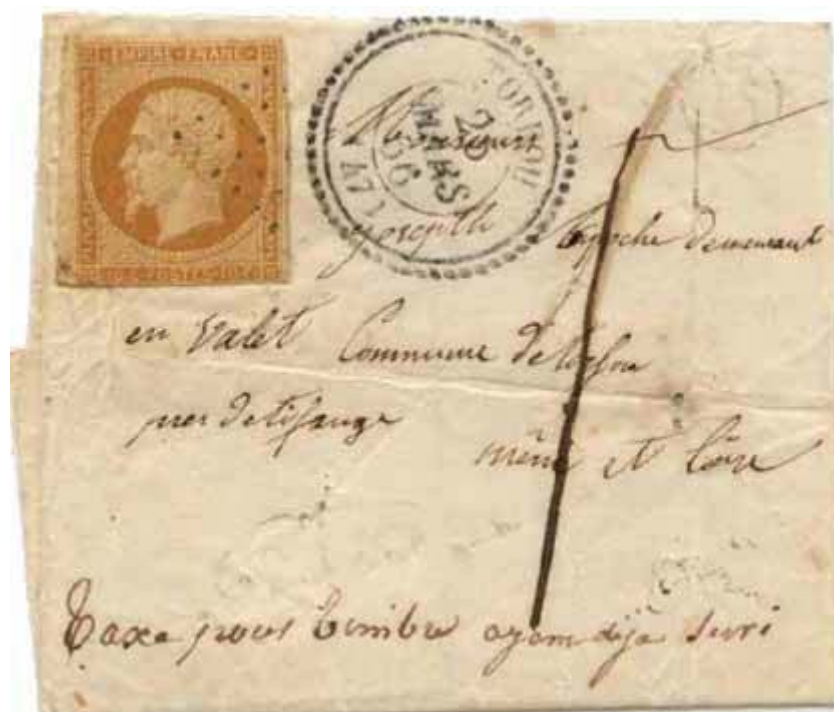 TORFOU
25
MARS
56
Monsieur
Joseph demeurant
en Valet Commune de torfou
pres de tifauge
mène et Loire
Taxe pour timbre ayam deja servi